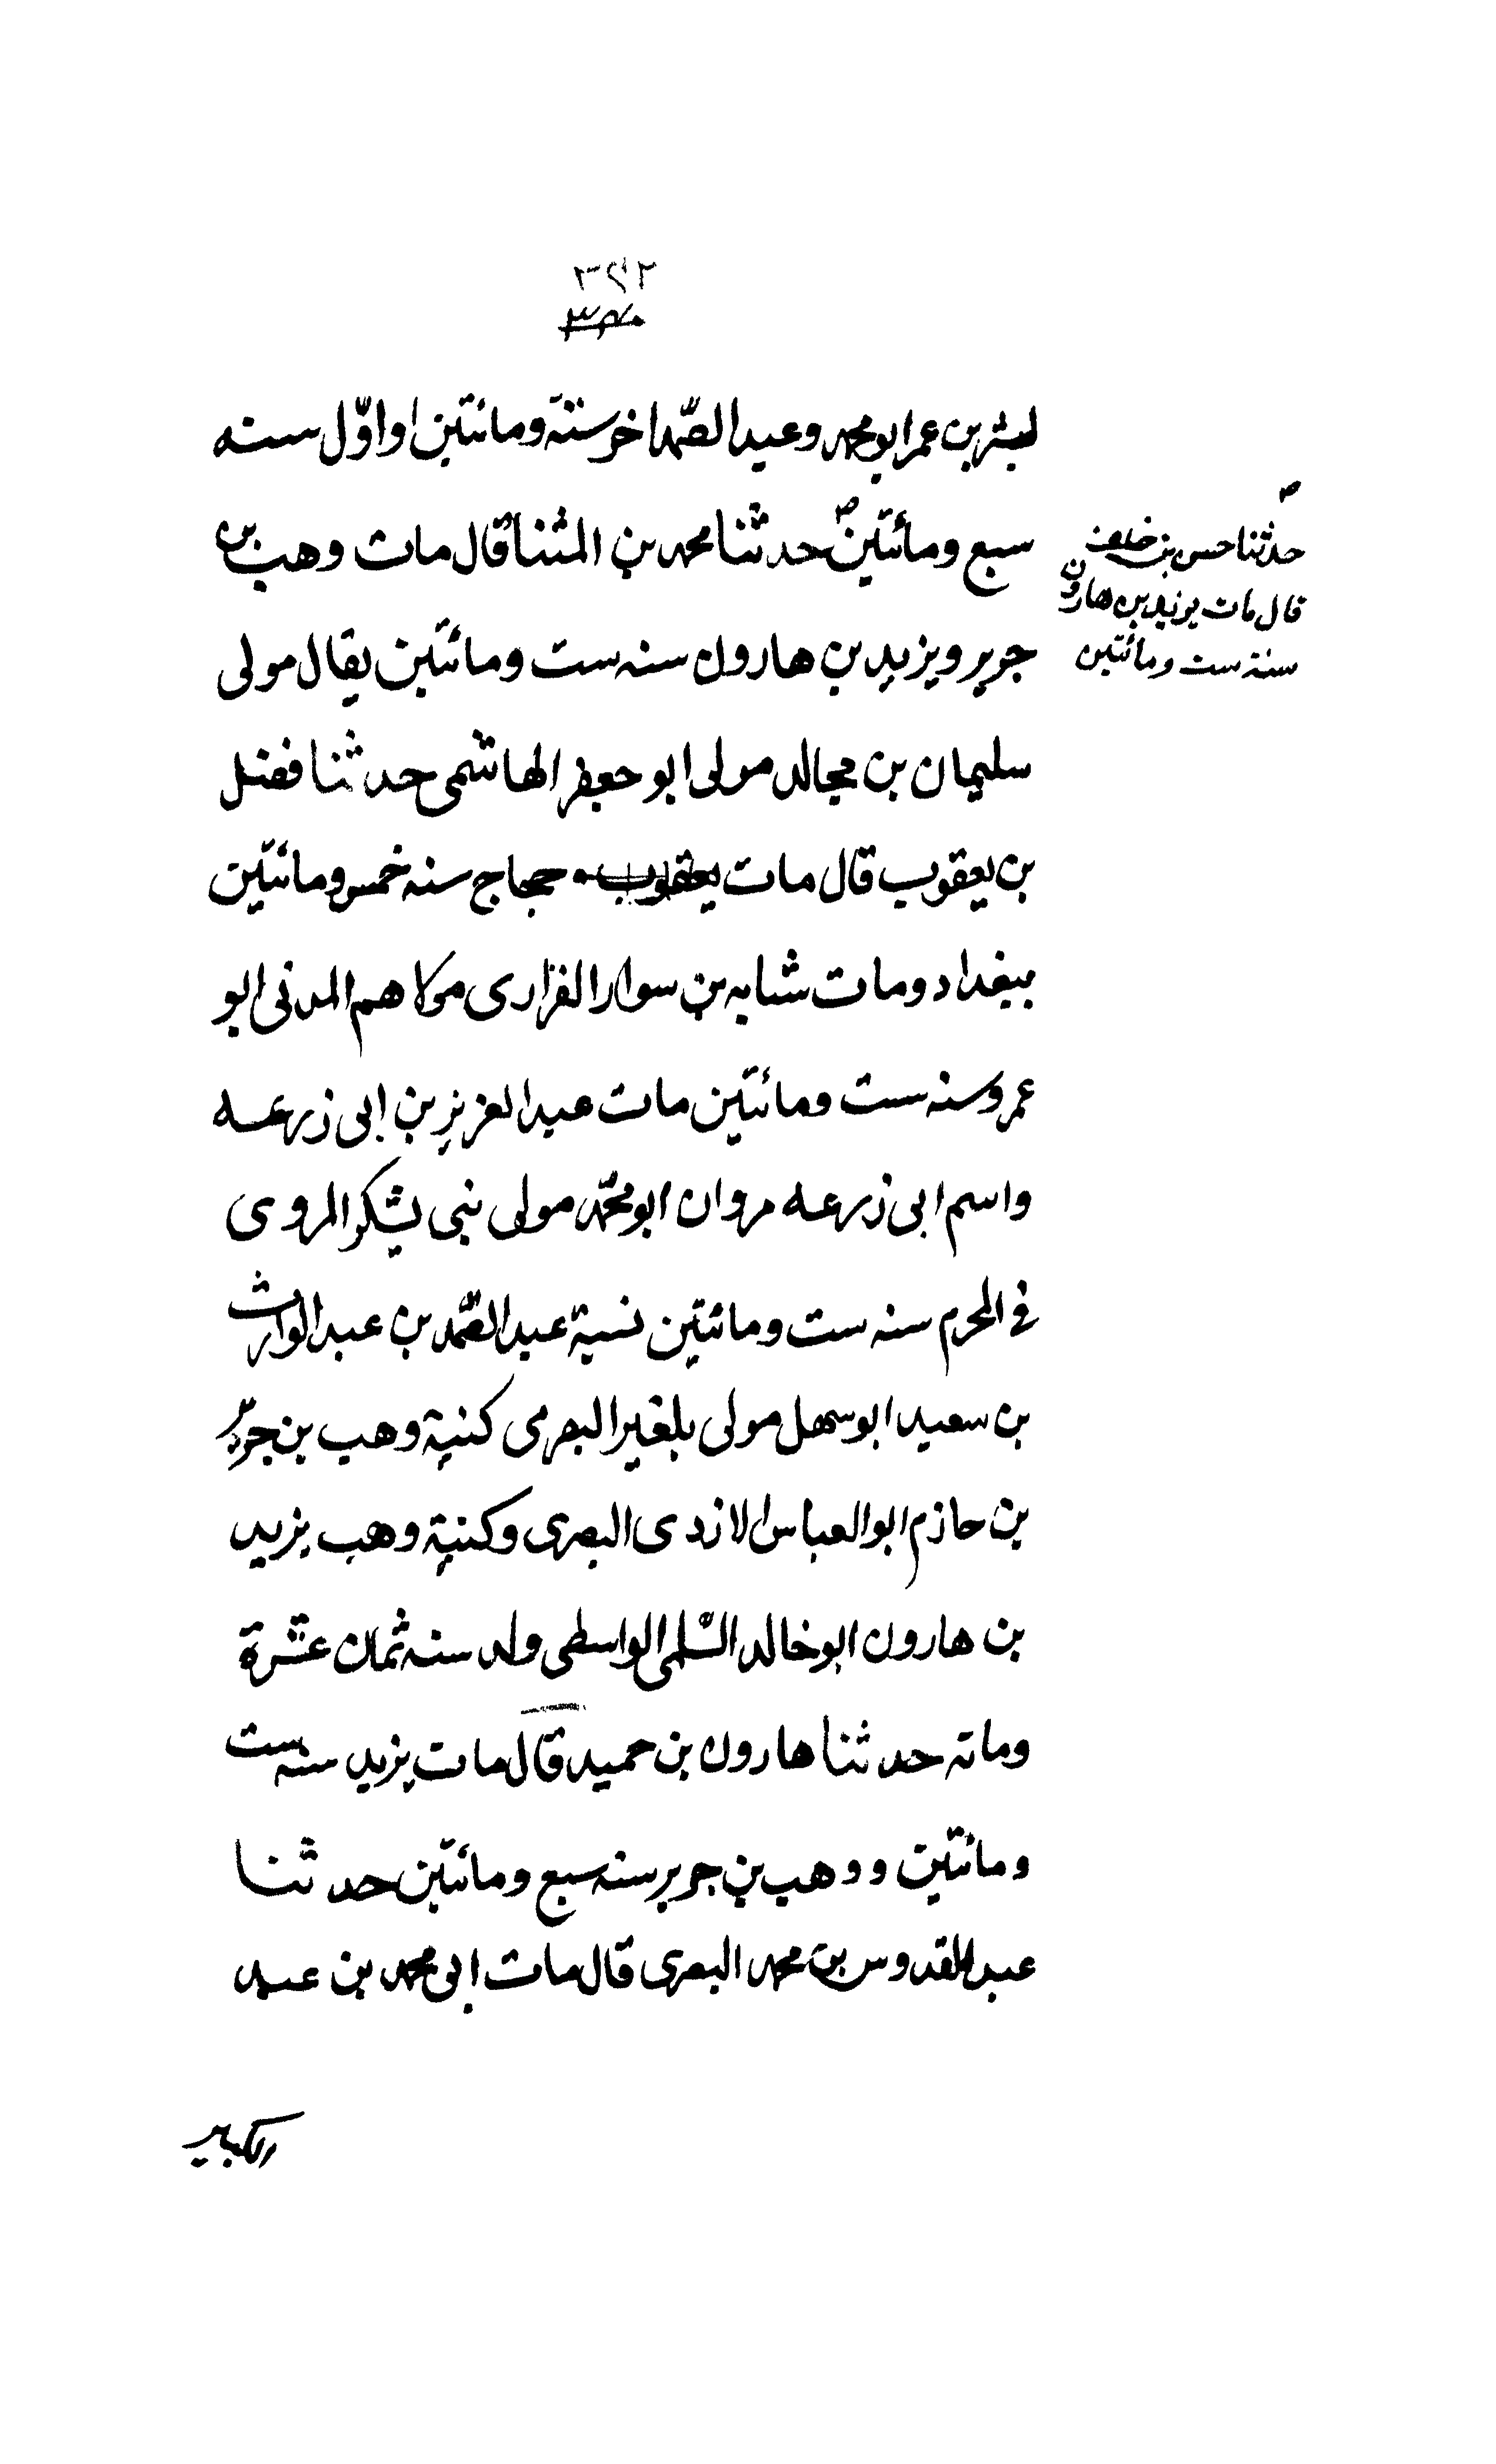 ٣٤٢
٣٤٠
لبشر بن عمر ابو محمد وعبد الصّمد اخر ستة ومائتين او اوّل سنه
سبع ومائتين ص حدثنا محمد بن المثنا قال مات وهب بن
جرير ويزيد بن هارون سنه ست ومائتين يقال مولى
سليمان بن مجالد مولى ابو جعفر الهاشمى حدثنا فضل
بن يعقوب قال مات يعقوب حجاج سنه خمس ومائتين
ببغداد ومات شبابه بن سوار الفزارى مولاهم المدنى ابو
عمرو سنه ست ومائتين مات عبد العزيز بن ابى زرعه
واسم ابى زرعه مروان ابو محمّد مولى بنى يشكر المروى
فى المحرم سنه ست ومائتين نسبة عبد الصّمد بن عبد الوارث
بن سعيد ابو سهل مولى بلغير البصرى كنية وهب بن جرير
بن حازم ابو العباس الازدى البصرى وكنية وهب يزيد
بن هارون ابو خالد السّلمى الواسطى ولد سنه ثمان عشرة
وماته حدثنا هارون بن حميد قال مات يزيد سنه ست
ومائتين و وهب بن جرير سنه سبع ومائتين حدثنا
عبد القدوس بن محمد البصرى قال مات ابى محمد بن عبد
الكبير
ص
حدثنا حسن بن خلف
قال مات يزيد بن هارون
سنة ست ومائتين